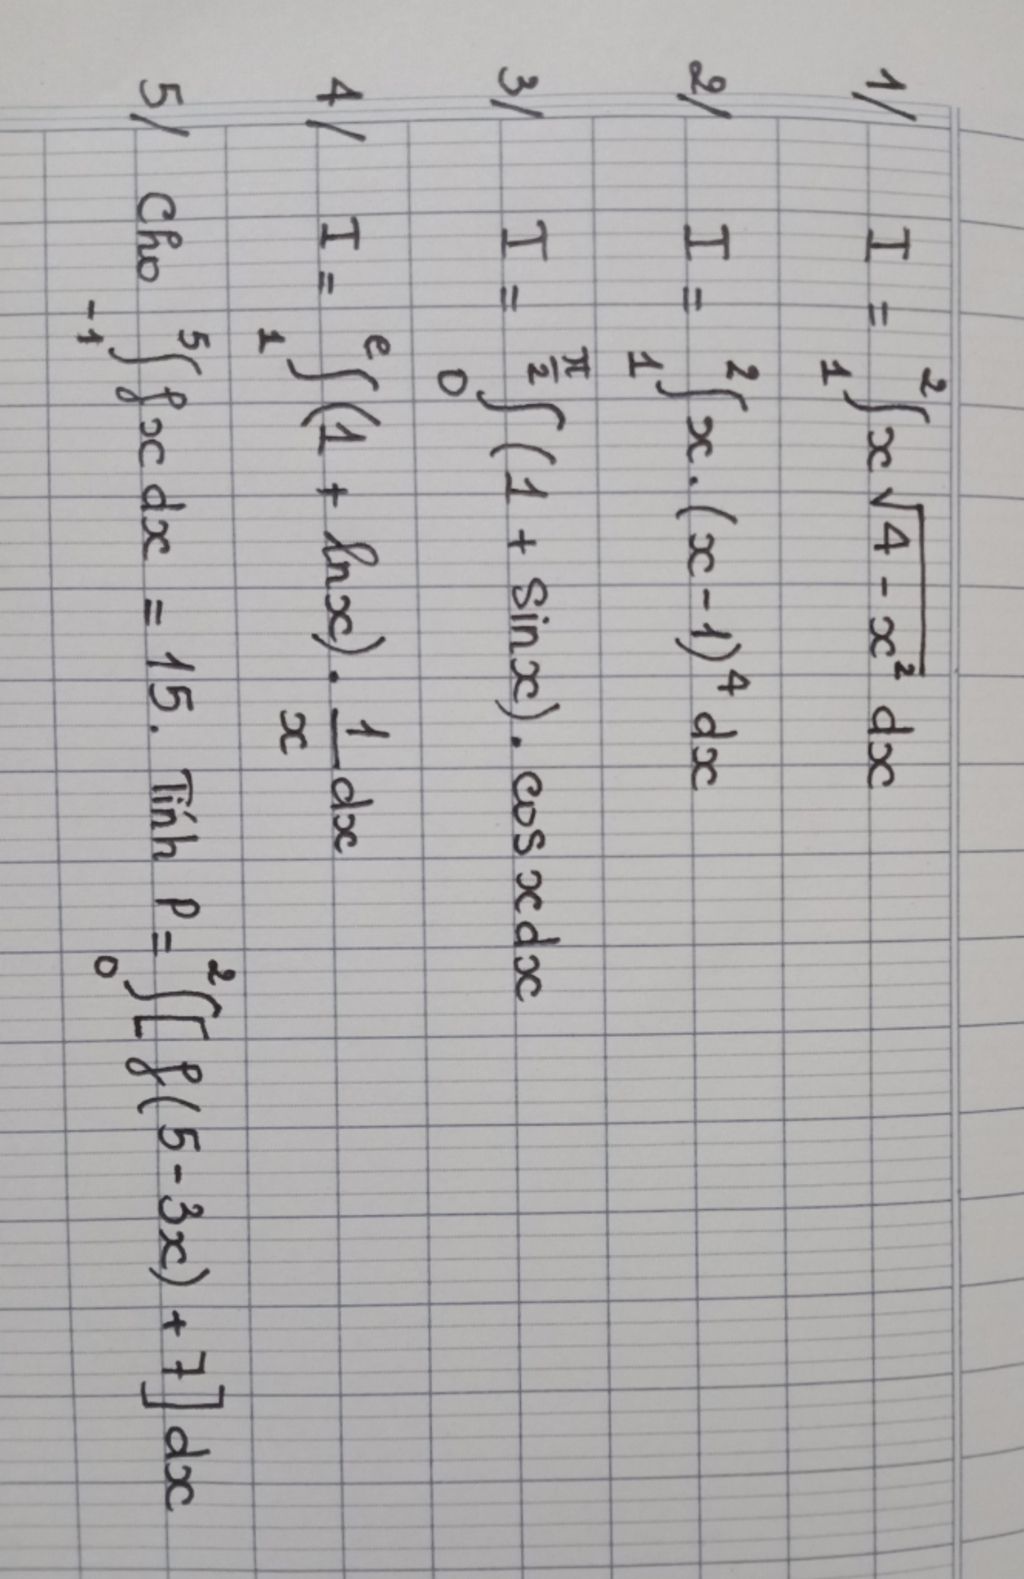 1/ I = ₁∫² x√(4 - x²) dx
2/ I = ₁∫² x.(x-1)⁴ dx
3/ I = ₀∫^(π/2) (1 + sinx). cos x dx
4/ I = ₁∫^e (1 + lnx). 1/x dx
5/ Cho ₋₁∫⁵ fx dx = 15. Tính P = ₀∫² [f(5-3x) + 7] dx